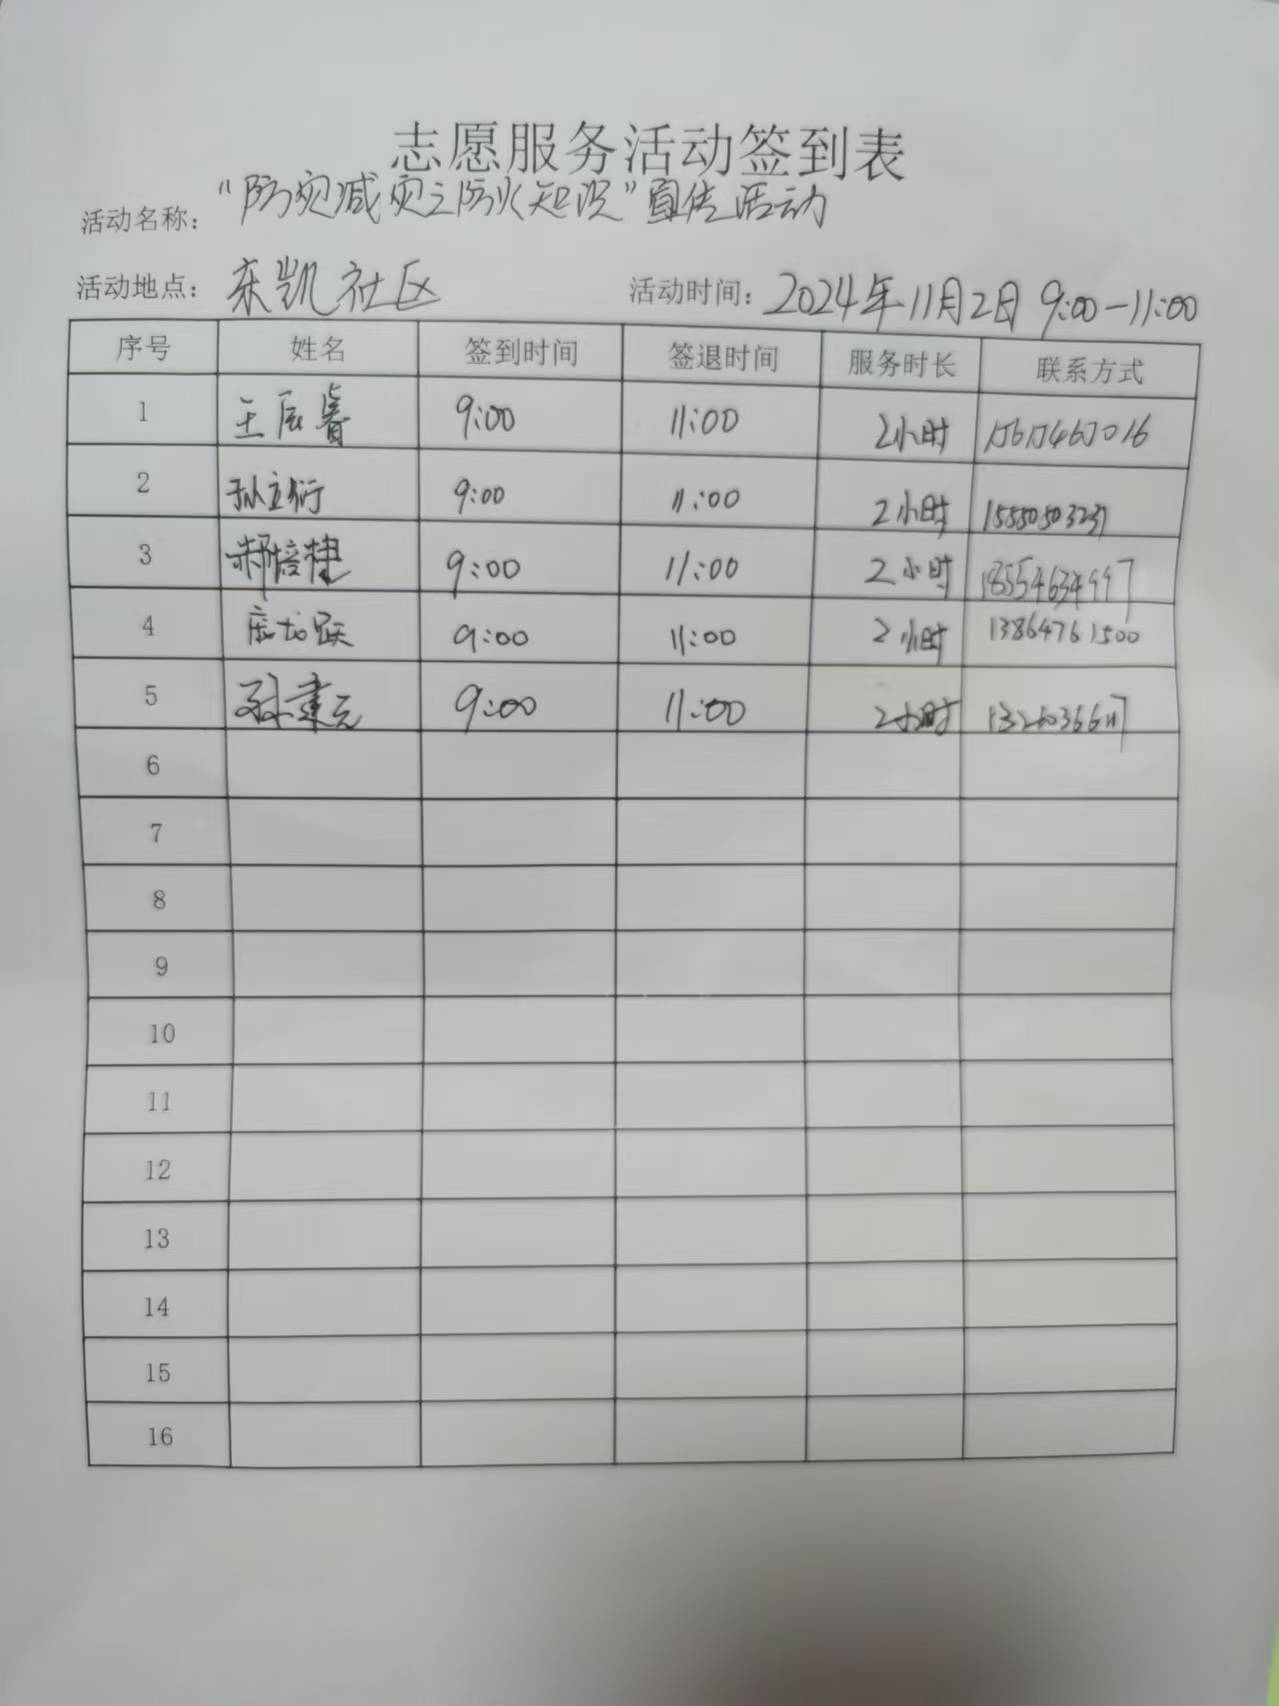 志愿服务活动签到表
活动名称: “防灾减灾之防火知识”宣传活动
活动地点: 东凯社区 活动时间: 2024年11月2日 9:00-11:00
序号 姓名 签到时间 签退时间 服务时长 联系方式
1 王辰睿 9:00 11:00 2小时
2 孙立衍 9:00 11:00 2小时 15550503237
3 郝培捷 9:00 11:00 2小时 18554634997
4 9:00 11:00 2小时 13864761500
5 孙建元 9:00 11:00 2小时
6
7
8
9
10
11
12
13
14
15
16